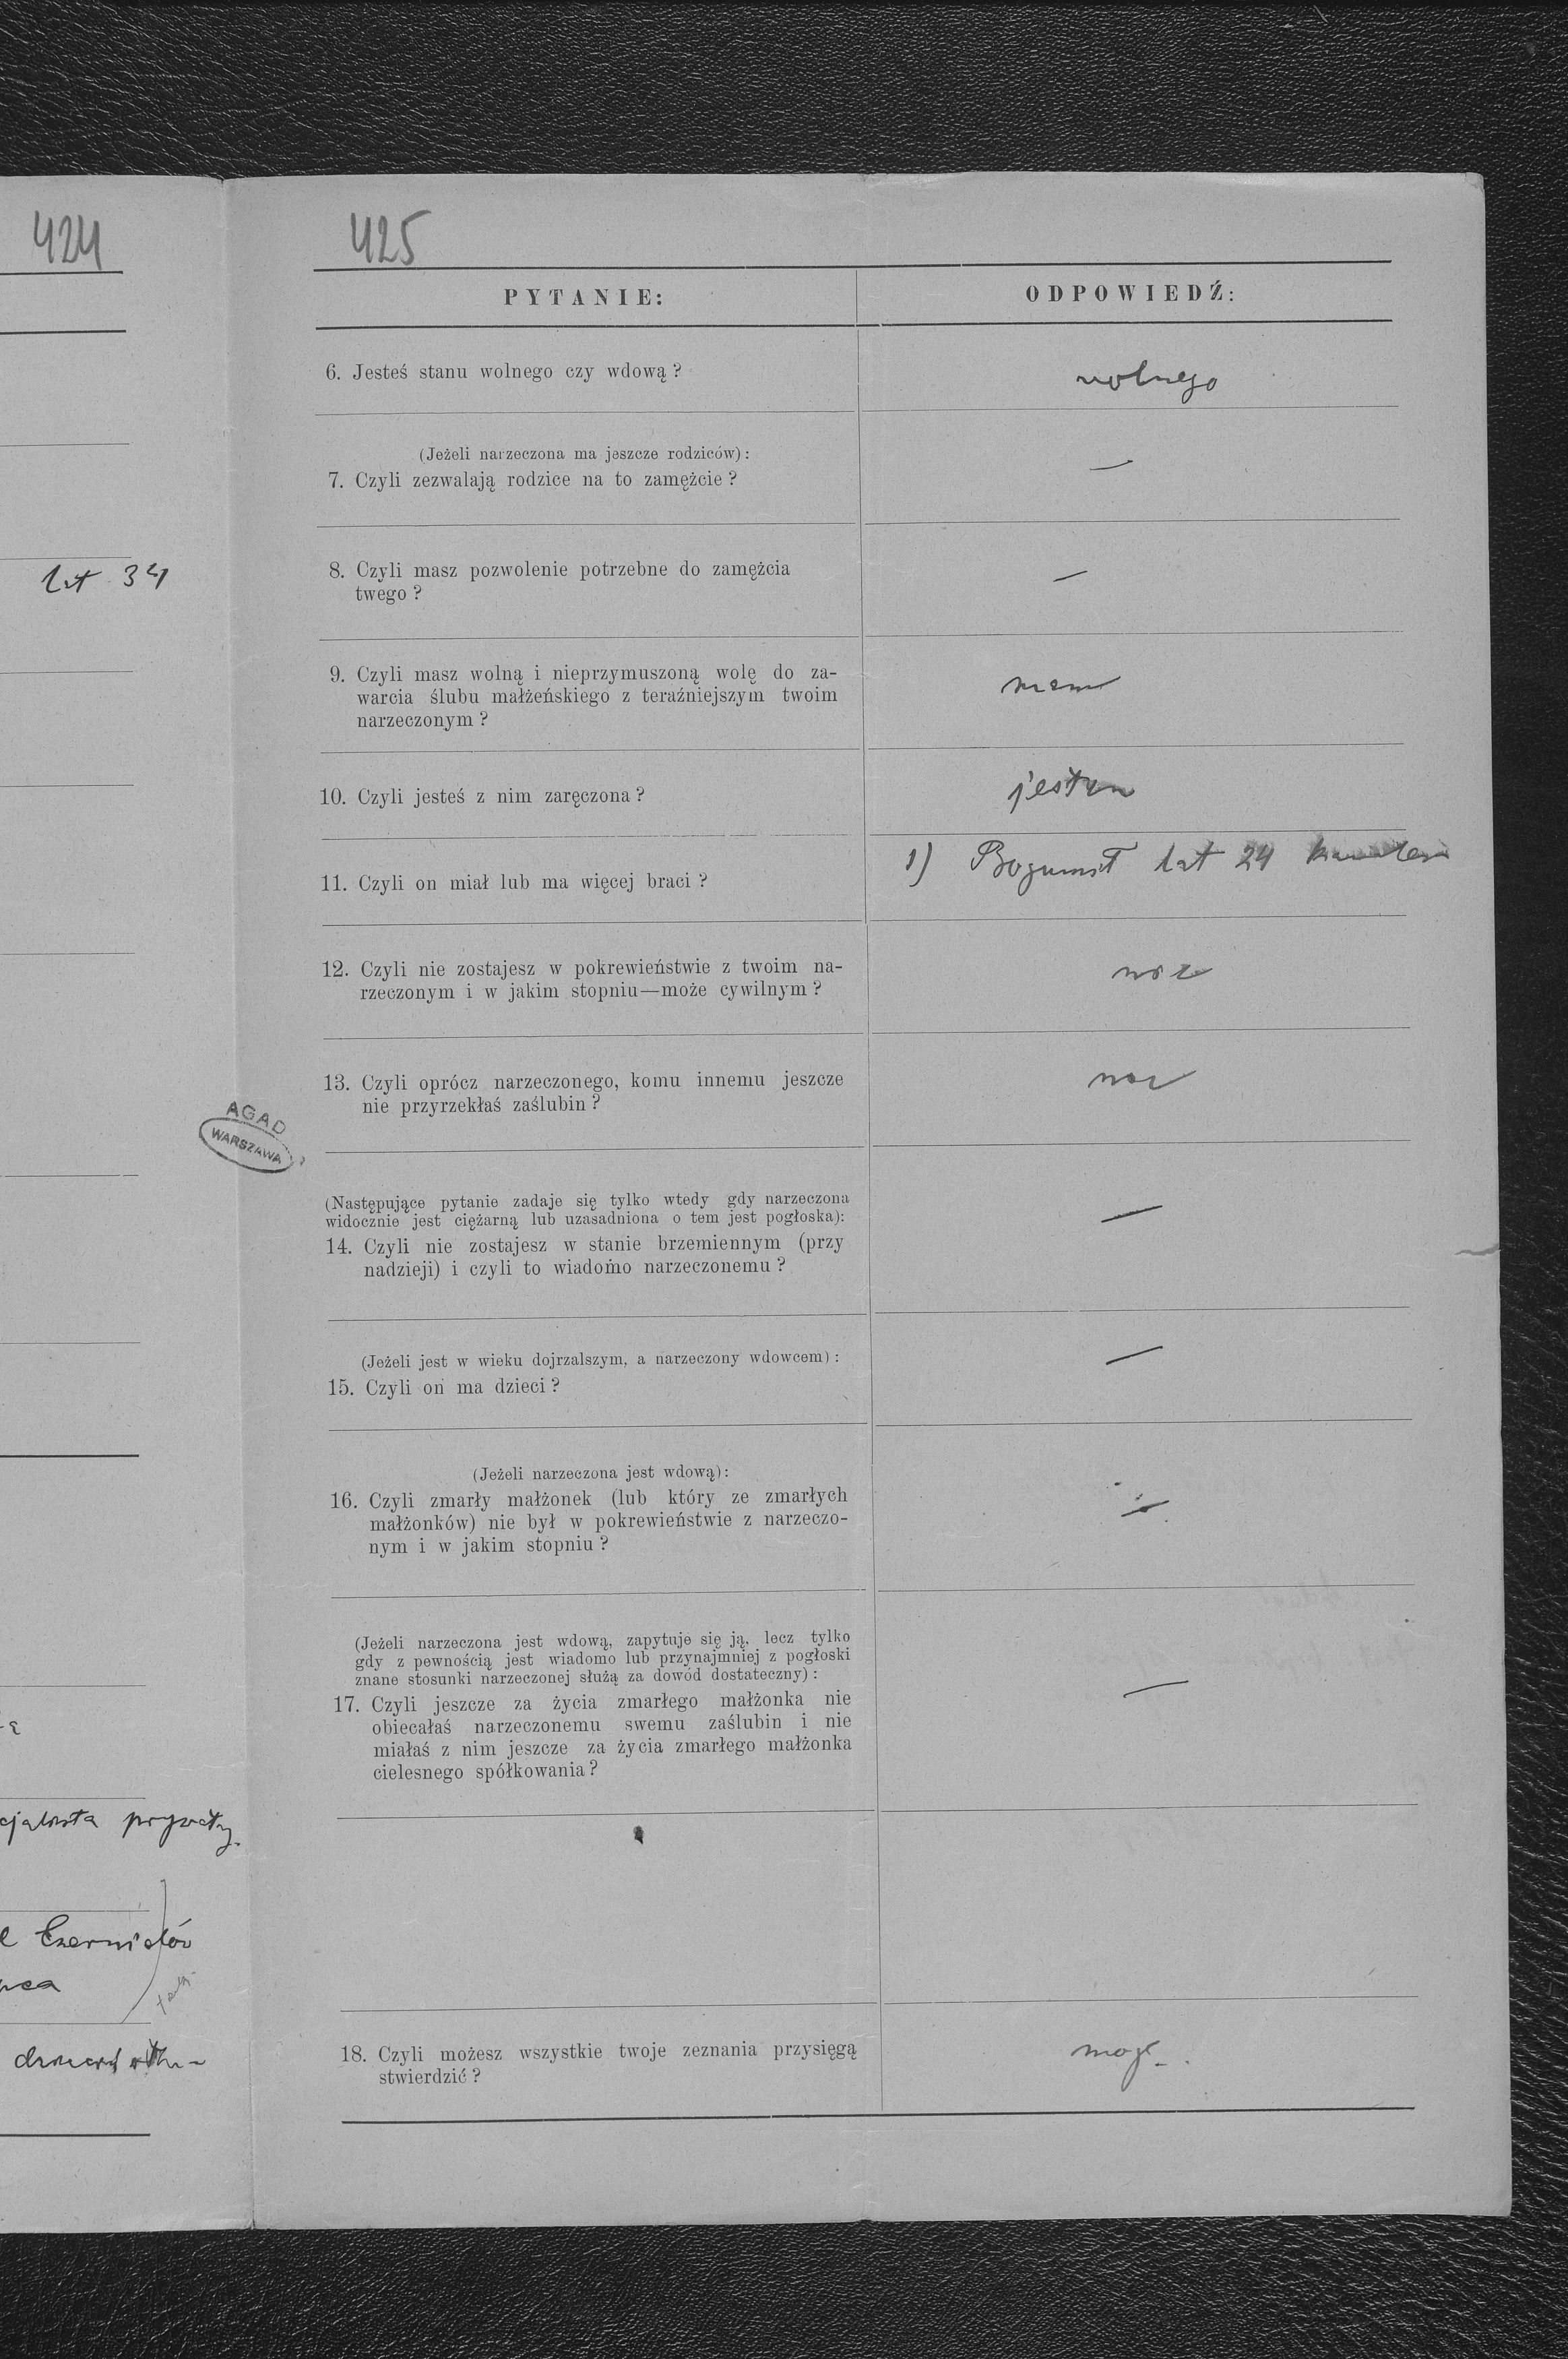 424
lat 34
prywatny
Czernielów
425
PYTANIE:
ODPOWIEDŹ:
6. Jesteś stanu wolnego czy wdową ?
wolnego
(Jeżeli narzeczona ma jeszcze rodziców) :
7. Czyli zezwalają rodzice na to zamężcie ?
—
8. Czyli masz pozwolenie potrzebne do zamężcia
twego ?
—
9. Czyli masz wolną i nieprzymuszoną wolę do za-
warcia ślubu małżeńskiego z teraźniejszym twoim
narzeczonym ?
mam
10. Czyli jesteś z nim zaręczona ?
jestem
11. Czyli on miał lub ma więcej braci ?
1) Bogumił lat 24
12. Czyli nie zostajesz w pokrewieństwie z twoim na-
rzeczonym i w jakim stopniu—może cywilnym ?
nie
13. Czyli oprócz narzeczonego, komu innemu jeszcze
nie przyrzekłaś zaślubin ?
nie
AGAD
WARSZAWA
(Następujące pytanie zadaje się tylko wtedy gdy narzeczona
widocznie jest ciężarną lub uzasadniona o tem jest pogłoska):
14. Czyli nie zostajesz w stanie brzemiennym (przy
nadzieji) i czyli to wiadomo narzeczonemu ?
—
(Jeżeli jest w wieku dojrzalszym, a narzeczony wdowcem) :
15. Czyli on ma dzieci ?
—
(Jeżeli narzeczona jest wdową) :
16. Czyli zmarły małżonek (lub który ze zmarłych
małżonków) nie był w pokrewieństwie z narzeczo-
nym i w jakim stopniu ?
—
(Jeżeli narzeczona jest wdową, zapytuje się ją, lecz tylko
gdy z pewnością jest wiadomo lub przynajmniej z pogłoski
znane stosunki narzeczonej służą za dowód dostateczny) :
17. Czyli jeszcze za życia zmarłego małżonka nie
obiecałaś narzeczonemu swemu zaślubin i nie
miałaś z nim jeszcze za życia zmarłego małżonka
cielesnego spółkowania ?
—
18. Czyli możesz wszystkie twoje zeznania przysięgą
stwierdzić ?
mogę